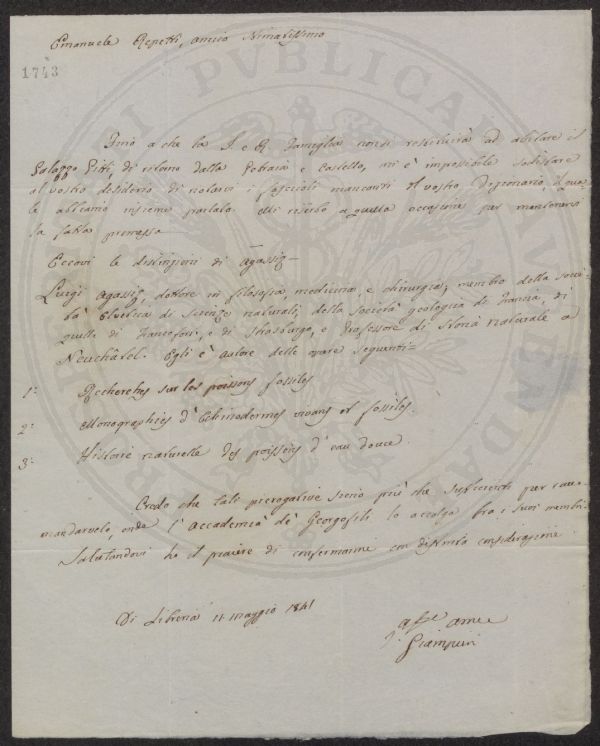 Emanuele Repetti, amico stimatissimo
1743
Fino a che la I. e R. Famiglia non si restituirà ad abitare il
Palazzo Pitti di ritorno dalla Petraia e Castello, mi è impossibile sodisfare
al vostro desiderio di notarvi i fascicoli mancanti al vostro Dizionario, del qua
le abbiamo insieme parlato. Mi riserbo a quella occasione per mantenervi
la fatta promessa
Eccovi le distinzioni di Agassiz =
Luigi Agassiz, dottore in filosofia, medicina, e chirurgia, membro della socie
tà Elvetica di Scienze naturali, della società geologica di Francia, di
quelle di Francofort, e di Strasburgo, e Professore di Storia naturale a
Neuchâtel. Egli è autore delle opere seguenti =
1° Recherches sur les poissons fossiles
2° Monographies d'Echinodermes vivans et fossiles.
3° Histoire naturelle des poissons d'eau douce.
Credo che tali prerogative sieno più che sufficienti per racco
mandarvelo, onde l'Accademia de' Georgofili lo accolga fra i suoi membri.
Salutandovi ho il piacere di confermarmi con distinta considerazione
Di Libreria 11 maggio 1841
aff.e amico